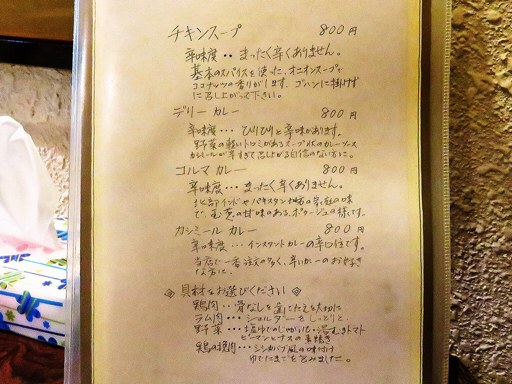 チキンスープ 800円
辛味度・・まったく辛くありません。
基本のスパイスを使った、オニオンスープで
ココナッツの香りがします。ゴハンに掛けず
に召し上がって下さい。
デリー カレー 800円
辛味度・・・ぴりぴりと辛味があります。
野菜の軽いトロミがあるスープ状のカレーソース
カシミールが辛すぎて 自信のない方に。
コルマ カレー 800円
辛味度・・・まったく辛くありません。
北部インドやパキスタン地方の 味
で、玉葱の甘味のある、ポタージュの様です。
カシミール カレー 800円
辛味度・・・インスタントカレーの辛口位です。
当店で一番注文の多く、辛いカレーのお好きな
な方に。
◈ 具材をお選びください ◈
鶏肉・・骨なしを 大切に
ラム肉・・・ショルダーをしっとりと
野菜・・・塩ゆでのじゃがいも・湯むきトマト
ピーマンとナスの素焼き
鶏の挽肉・・・シシカバブ風の味付け
ゆでたまごを包みました。